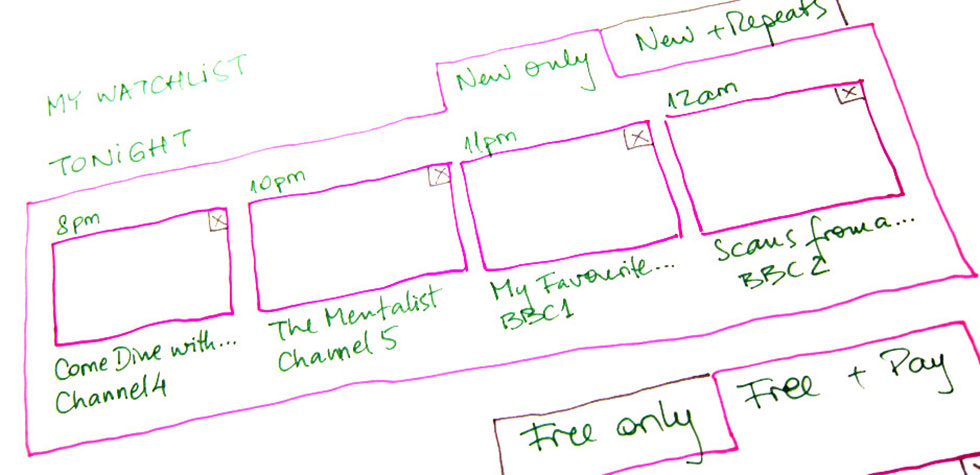 MY WATCHLIST
TONIGHT
New only
New + Repeats
8pm
Come Dine with...
Channel 4
10pm
The Mentalist
Channel 5
11pm
My Favourite...
BBC1
12am
Scans from a...
BBC 2
Free only
Free + Pay